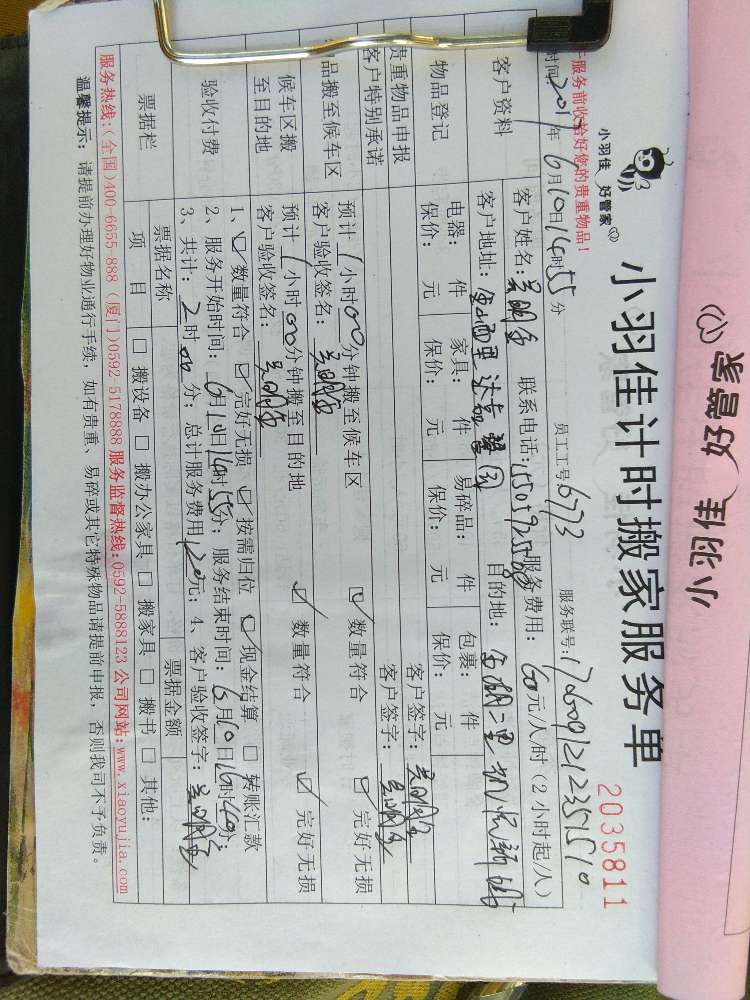 小羽佳 好管家
小羽佳 好管家
小羽佳计时搬家服务单
2035811
服务前收拾好您的贵重物品!
时间2017年6月10日14时55分 员工工号6773 服务联号:
客户资料 客户姓名: 联系电话: 服务费用:60元/人/时(2小时起/人)
客户地址: 目的地:
物品登记 电器: 件 家具: 件 易碎品: 件 包裹: 件
保价: 元 保价: 元 保价: 元 保价: 元
贵重物品申报 客户签字:
客户特别承诺 客户签字:
品搬至候车区 预计1小时00分钟搬至候车区 数量符合 完好无损
客户验收签名:
候车区搬至目的地 预计1小时00分钟搬至目的地 数量符合 完好无损
客户验收签名:
验收付费 1、数量符合 完好无损 按需归位 现金结算 转账汇款
2、服务开始时间:6月10日14时55分;服务结束时间:6月10日16时40分;
3、共计:2时00分;总计服务费用120元;4、客户验收签字:
票据栏 票据名称 票据金额
项目 搬设备 搬办公家具 搬家具 搬书 其他:
服务热线:(全国)400-6655-888 (厦门)0592-5178888 服务监督热线:0592-5888123 公司网站:www.xiaoyujia.com
温馨提示:请提前办理好物业通行手续,如有贵重、易碎或其它特殊物品请提前申报,否则我司不予负责。